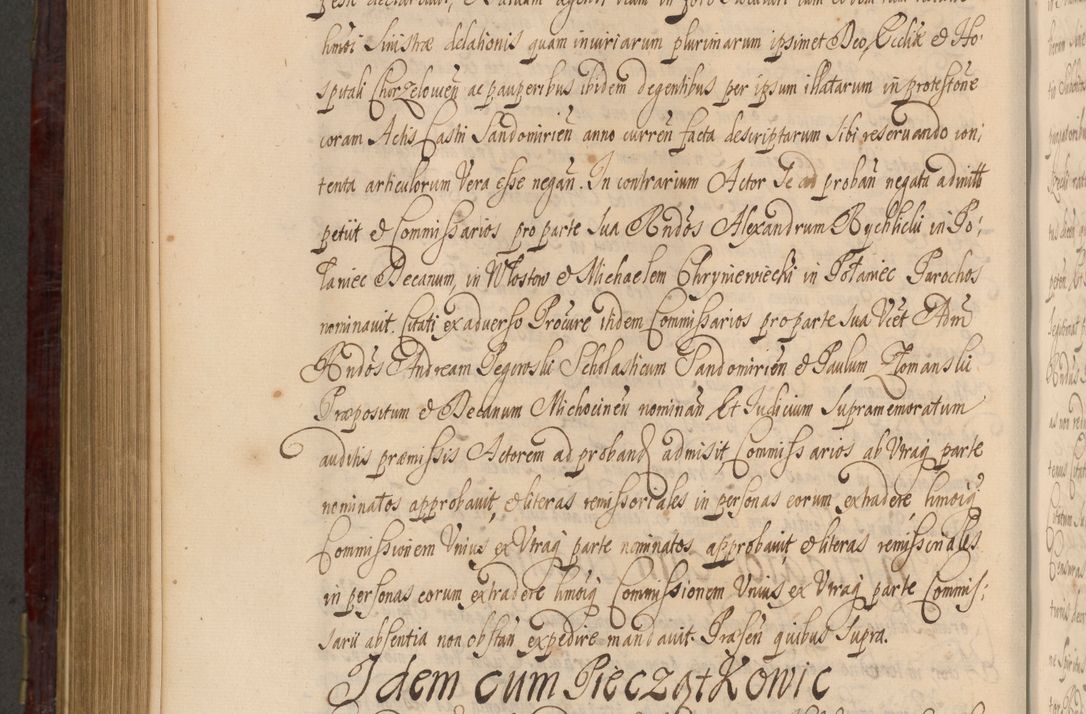 hmõi Sinistræ delationis quam iniuriarum plurimarum ipsimet Deo, Ecclix & Ho-
spitali Chorzelowen̄ ac pauperibus ibidem degentibus per ipsum illatarum in protestõne
coram Actis Castrĩ Sandomirien̄ anno curren̄ facta descriptarum sibi reseruando con-
tenta articulorum Vera esse negan̄. In contrarium Actor se ad proban̄ negata admitti
petiit & Commissarios pro parte sua Rñdos Alexandrum Rychlicki in Po-
łaniec Decanum, in Włostow & Michaelem Chryniewiecki in Połaniec Parochos
nominauit. Citati ex aduerso Procũre itidem Commissarios pro parte sua Vĕt Adm̄
Rñdos Andream Pegowski Scholasticum Sandomirien̄ & Paulum Złomanski
Præpositum & Decanum Michocinen̄ nominan̄ Et Iudicium supramemoratum
auditis præmissis Actorem ad proband admisit, Commissarios ab Vtraq parte
nominatos approbauit, & literas remissoriales in personas eorum extradere, hmõiq
Commissionem Vnius ex Vtraq parte nominatos approbauit & literas remissoriales
in personas eorum extradere hmõiq Commissionem Vnius ex Vtraq parte Commis-
sarii absentia non obstan̄ expedire mandauit. Præsen̄ quibus supra.
Idem cum Pieczątkowic